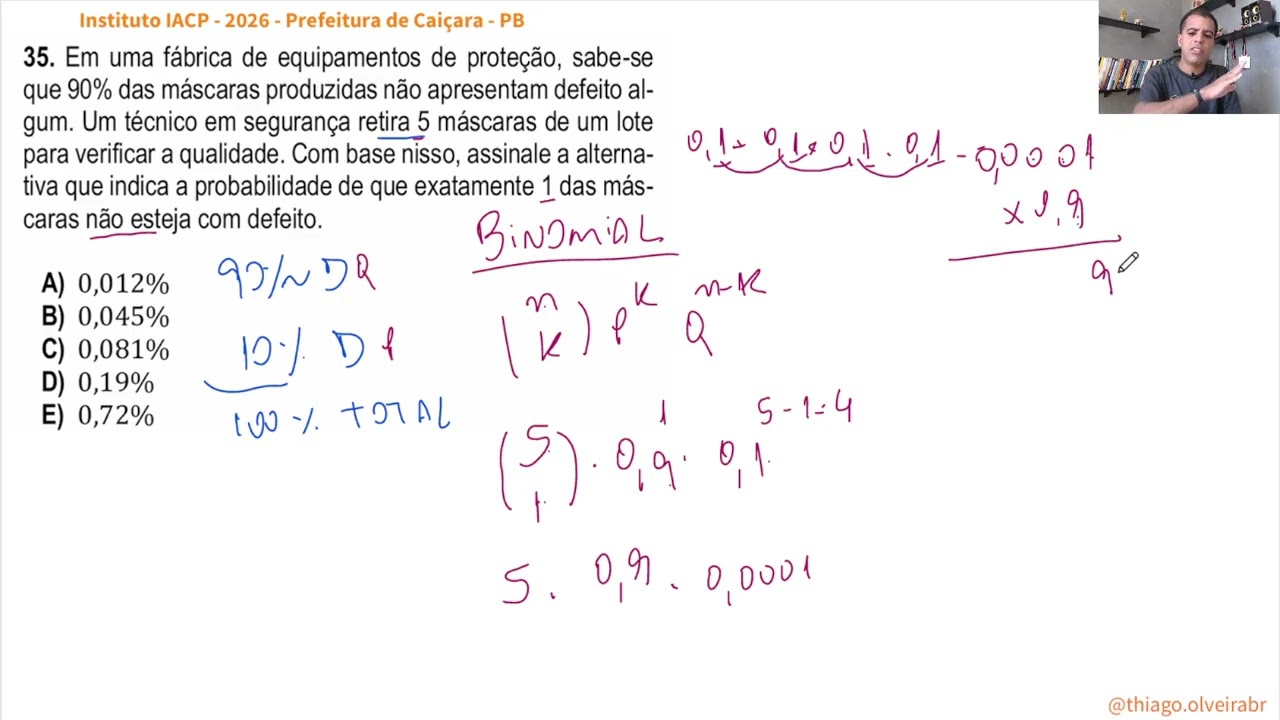 Instituto IACP - 2026 - Prefeitura de Caiçara - PB
35. Em uma fábrica de equipamentos de proteção, sabe-se
que 90% das máscaras produzidas não apresentam defeito al-
gum. Um técnico em segurança retira 5 máscaras de um lote
para verificar a qualidade. Com base nisso, assinale a alterna-
tiva que indica a probabilidade de que exatamente 1 das más-
caras não esteja com defeito.
A) 0,012%
B) 0,045%
C) 0,081%
D) 0,19%
E) 0,72%
90% N D Q
10% D P
100% TOTAL
BINOMIAL
(n K) P^K Q^n-K
(5 1) . 0,9^1 . 0,1^5-1=4
5 . 0,9 . 0,0001
0,1 × 0,1 × 0,1 . 0,1 - 0,0001
× 0,9
9
@thiago.olveirabr